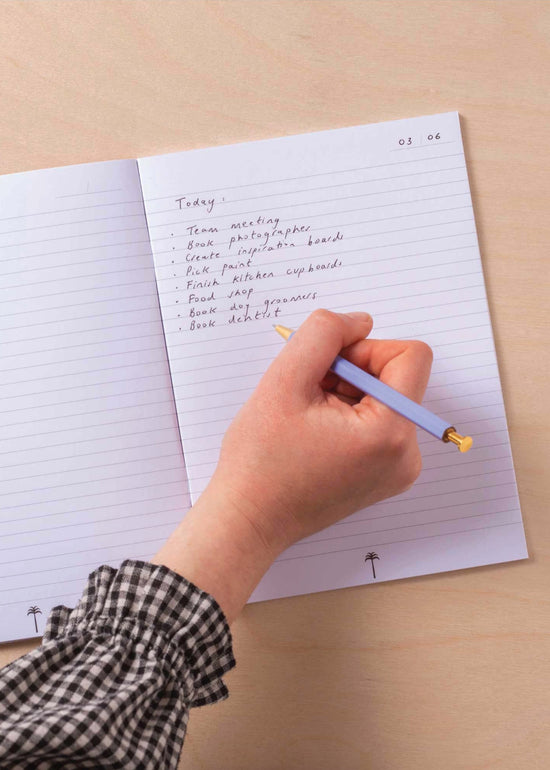 03 06
Today:
· Team meeting
· Book photographer
· Create inspiration boards
· Pick paint
· Finish kitchen cupboards
· Food shop
· Book dog groomers
· Book dentist